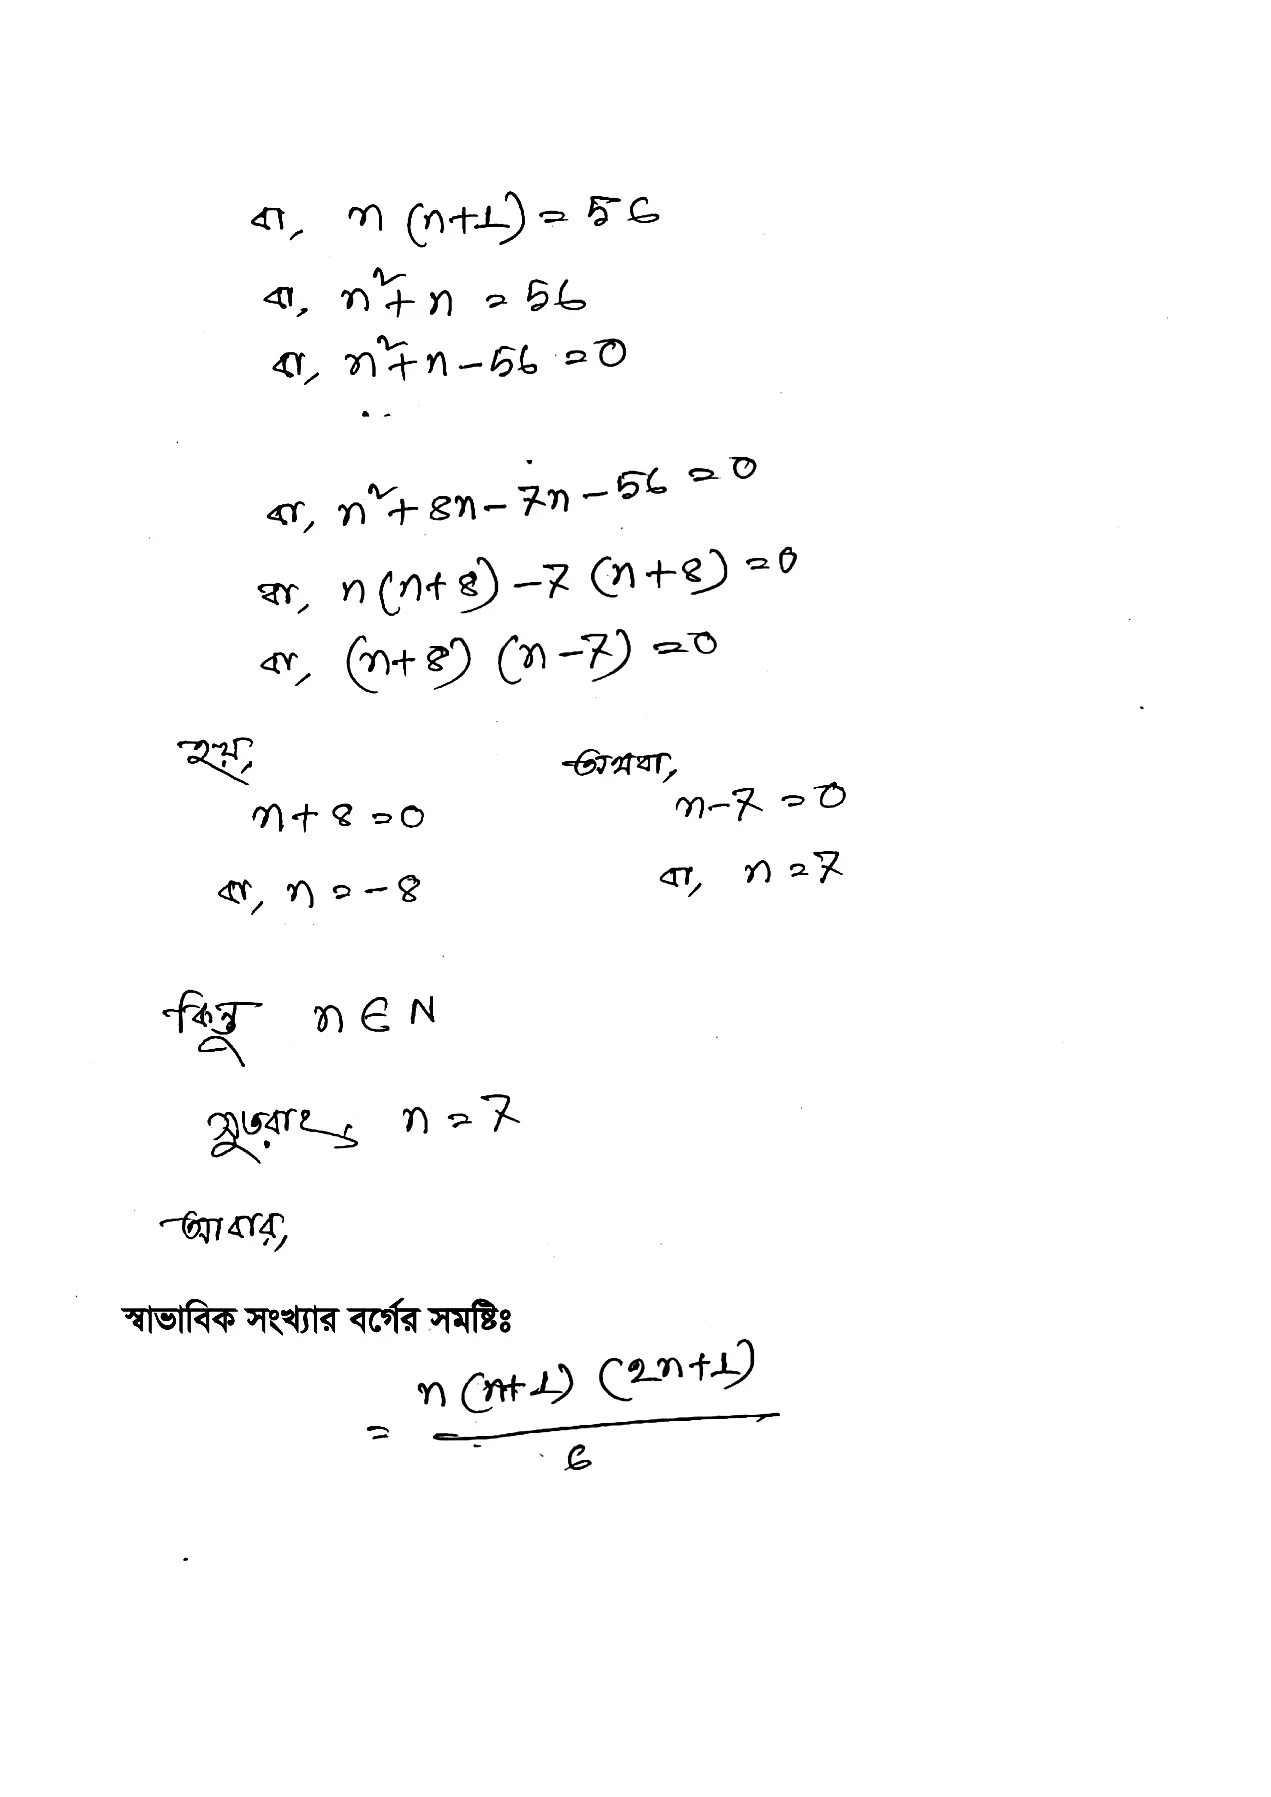 বা, n (n+1) = 56
বা, n²+n = 56
বা, n²+n-56 = 0
বা, n²+8n-7n-56 = 0
বা, n(n+8)-7(n+8) = 0
বা, (n+8) (n-7) = 0
হয়,
n+8 = 0
বা, n = -8
অথবা,
n-7 = 0
বা, n = 7
কিন্তু n ∈ N
সুতরাং, n = 7
আবার,
স্বাভাবিক সংখ্যার বর্গের সমষ্টিঃ
n (n+1) (2n+1)
= ―
6